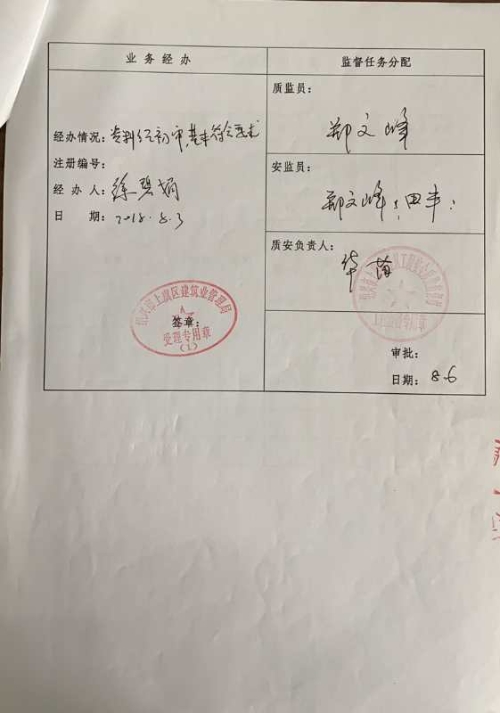 业务经办
经办情况：资料经初审，基本符合要求
注册编号：
经办人：徐碧娟
日期：2018.8.3
绍兴市上虞区建筑业管理局
签章：
受理专用章
（1）
监督任务分配
质监员：
郑文峰
安监员：
郑文峰；田丰；
质安负责人：
审批：
日期：8.6